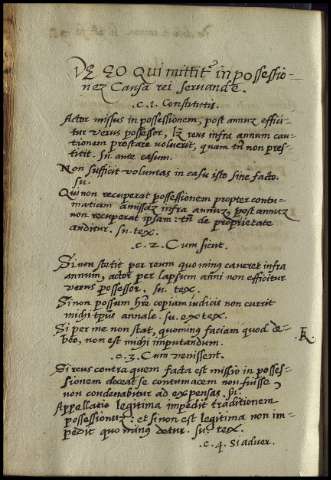 DE EO Qui mittit' in possessio-
nez Causa rei seruande.
.c.1. Constitutis.
Actor missus in possessionem, post annuz effici-
tur verus possessor, lz reus infra annum cau-
tionem prestare voluerit, quam tn̄ non pres-
titit. Sn. ante casum.
Non sufficit voluntas in casu isto sine facto.
su.
Qui non recuperat possessionem propter contu-
matiam amissaz infra annuz, post annuz
non recuperat ipsam: tn̄ de proprietate
auditur. su. tex.
.c. 2. Cum sicut.
Si non stetit per reum quo minus caueret infra
annum, actor per lapsum anni non efficitur
verus possessor. su. tex.
Si non possum hr̄e copiam iudicis non currit
michi tp̄us annale. su. eo tex.
Si per me non stat, quominus faciam quod de-
beo, non est michi imputandum.
.c. 3. Cum venissent.
Si reus contra quem facta est missio in posses-
sionem doceat se contumacem non fuisse,
non condenabitur ad expensas. su.
Appellatio legitima impedit traditionem
possessionuz: et si non est legitima non im-
pedit quominus detur. su. tex.
.c. 4. Si aduer.